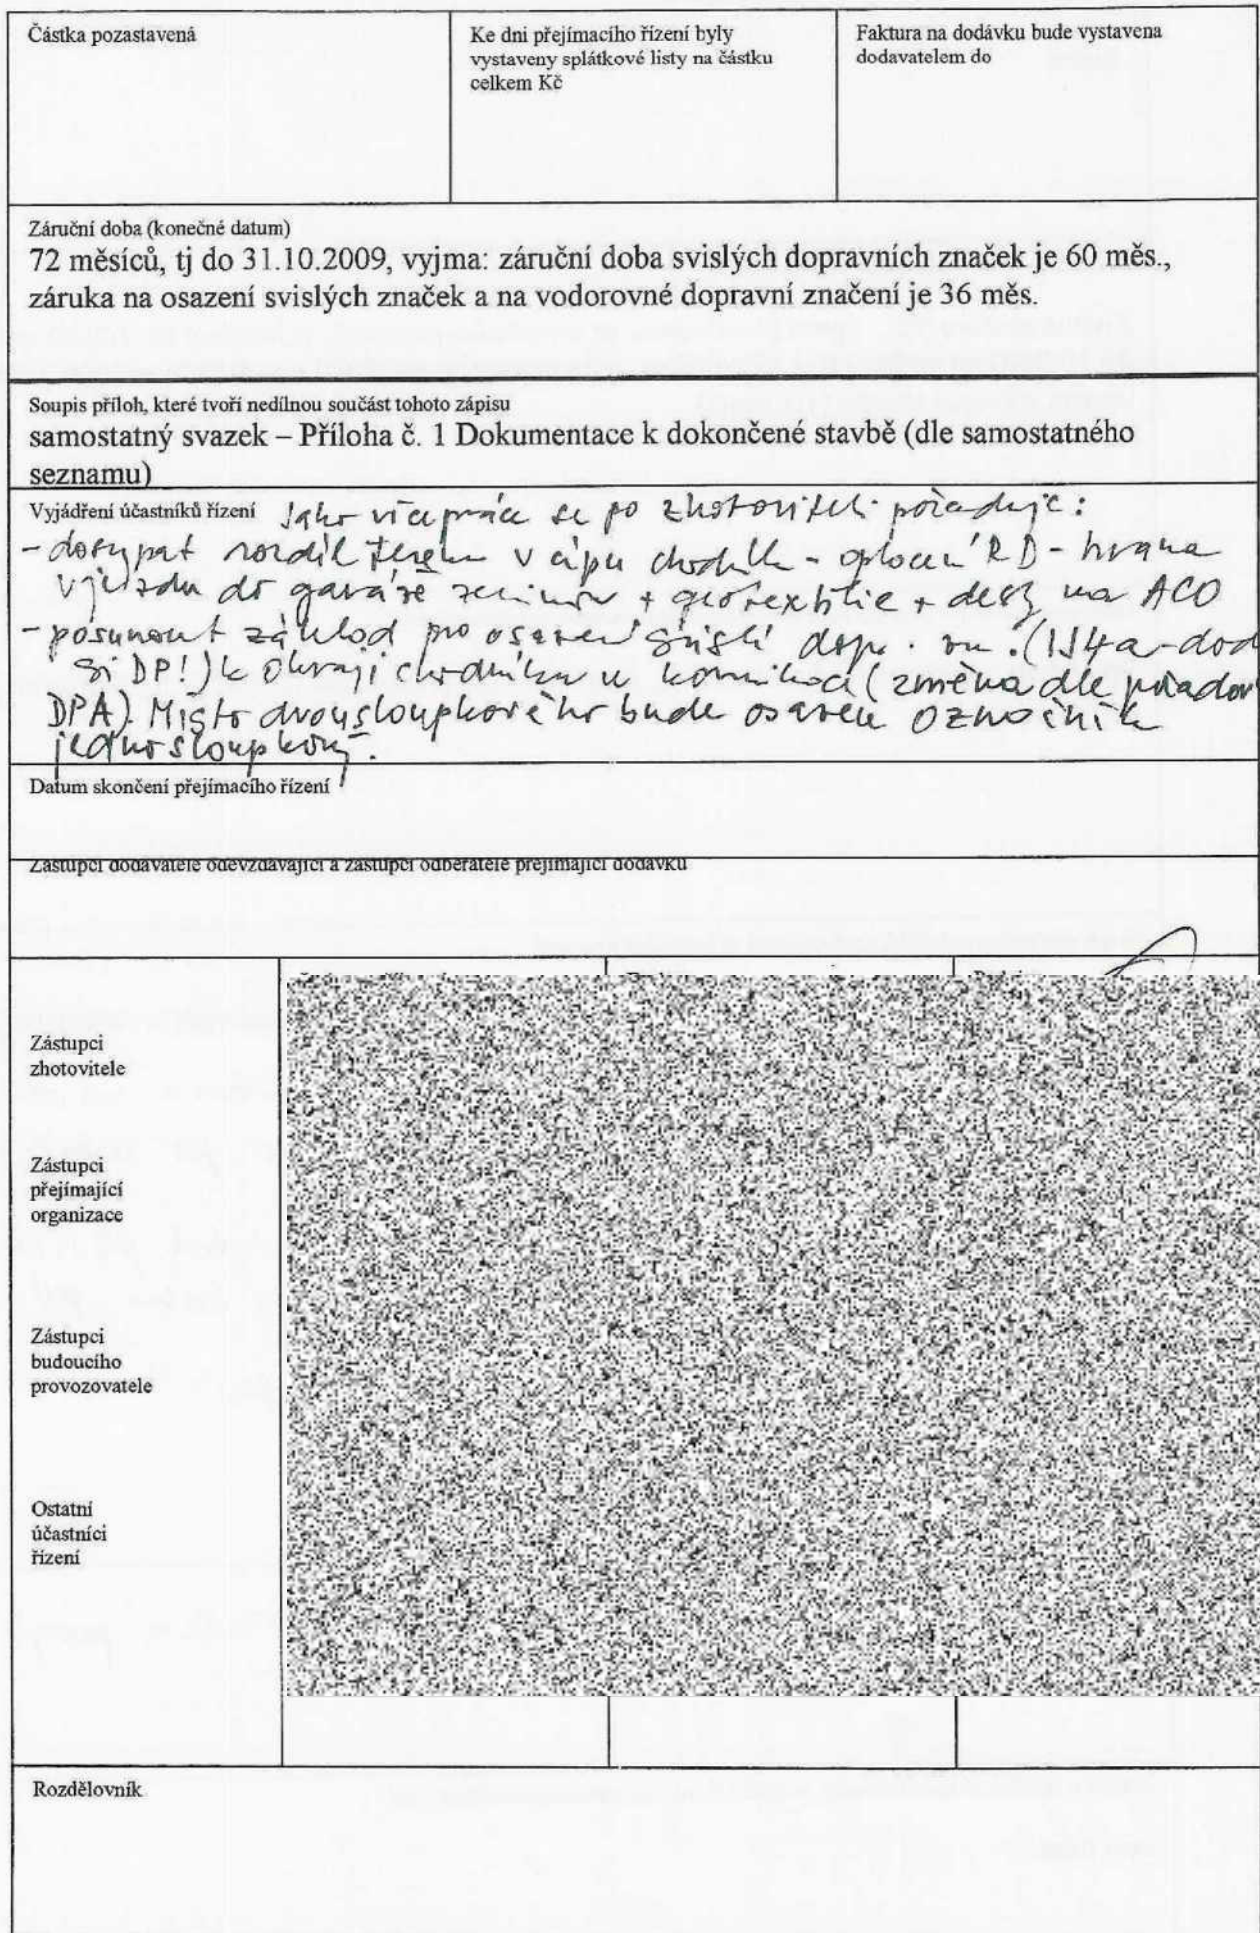 Částka pozastavená
Ke dni přejímacího řízení byly
vystaveny splátkové listy na částku
celkem Kč
Faktura na dodávku bude vystavena
dodavatelem do
Záruční doba (konečné datum)
72 měsíců, tj do 31.10.2009, vyjma: záruční doba svislých dopravních značek je 60 měs.,
záruka na osazení svislých značek a na vodorovné dopravní značení je 36 měs.
Soupis příloh, které tvoří nedílnou součást tohoto zápisu
samostatný svazek – Příloha č. 1 Dokumentace k dokončené stavbě (dle samostatného
seznamu)
Vyjádření účastníků řízení Jako vícepráce se po zhotoviteli požaduje:
- dosypat rozdíl terénu v cípu - oplocení RD - hrana
vjezdu do garáže zeminou + geotextilie + na ACO
- posunout základ pro osazení dop. zn.
DP!) k okraji chodníku u (změna dle
DPA). Místo dvousloupkového bude osazen označník
jednosloupkový.
Datum skončení přejímacího řízení
Zástupci dodavatele odevzdávající a zástupci odběratele přejímající dodávku
Zástupci
zhotovitele
Zástupci
přejímající
organizace
Zástupci
budoucího
provozovatele
Ostatní
účastníci
řízení
Rozdělovník